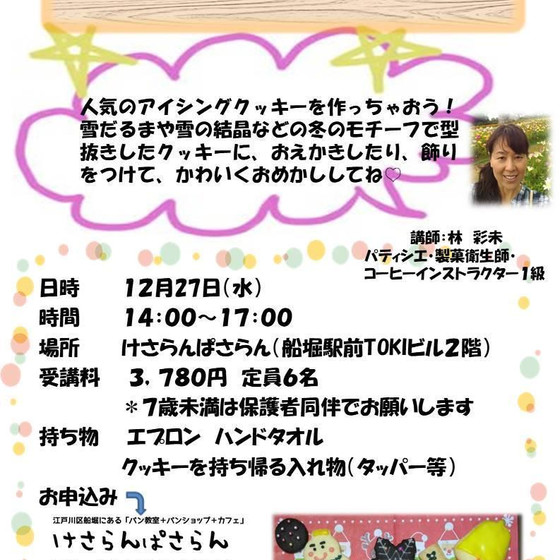 人気のアイシングクッキーを作っちゃおう！
雪だるまや雪の結晶などの冬のモチーフで型
抜きしたクッキーに、おえかきしたり、飾り
をつけて、かわいくおめかししてね♡
講師：林　彩未
パティシエ・製菓衛生師・
コーヒーインストラクター１級
日時　１２月２７日（水）
時間　１４：００～１７：００
場所　けさらんぱさらん（船堀駅前TOKIビル２階）
受講料　３，７８０円　定員６名
＊７歳未満は保護者同伴でお願いします
持ち物　エプロン　ハンドタオル
クッキーを持ち帰る入れ物（タッパー等）
お申込み
江戸川区船堀にある「パン教室＋パンショップ＋カフェ」
けさらんぱさらん